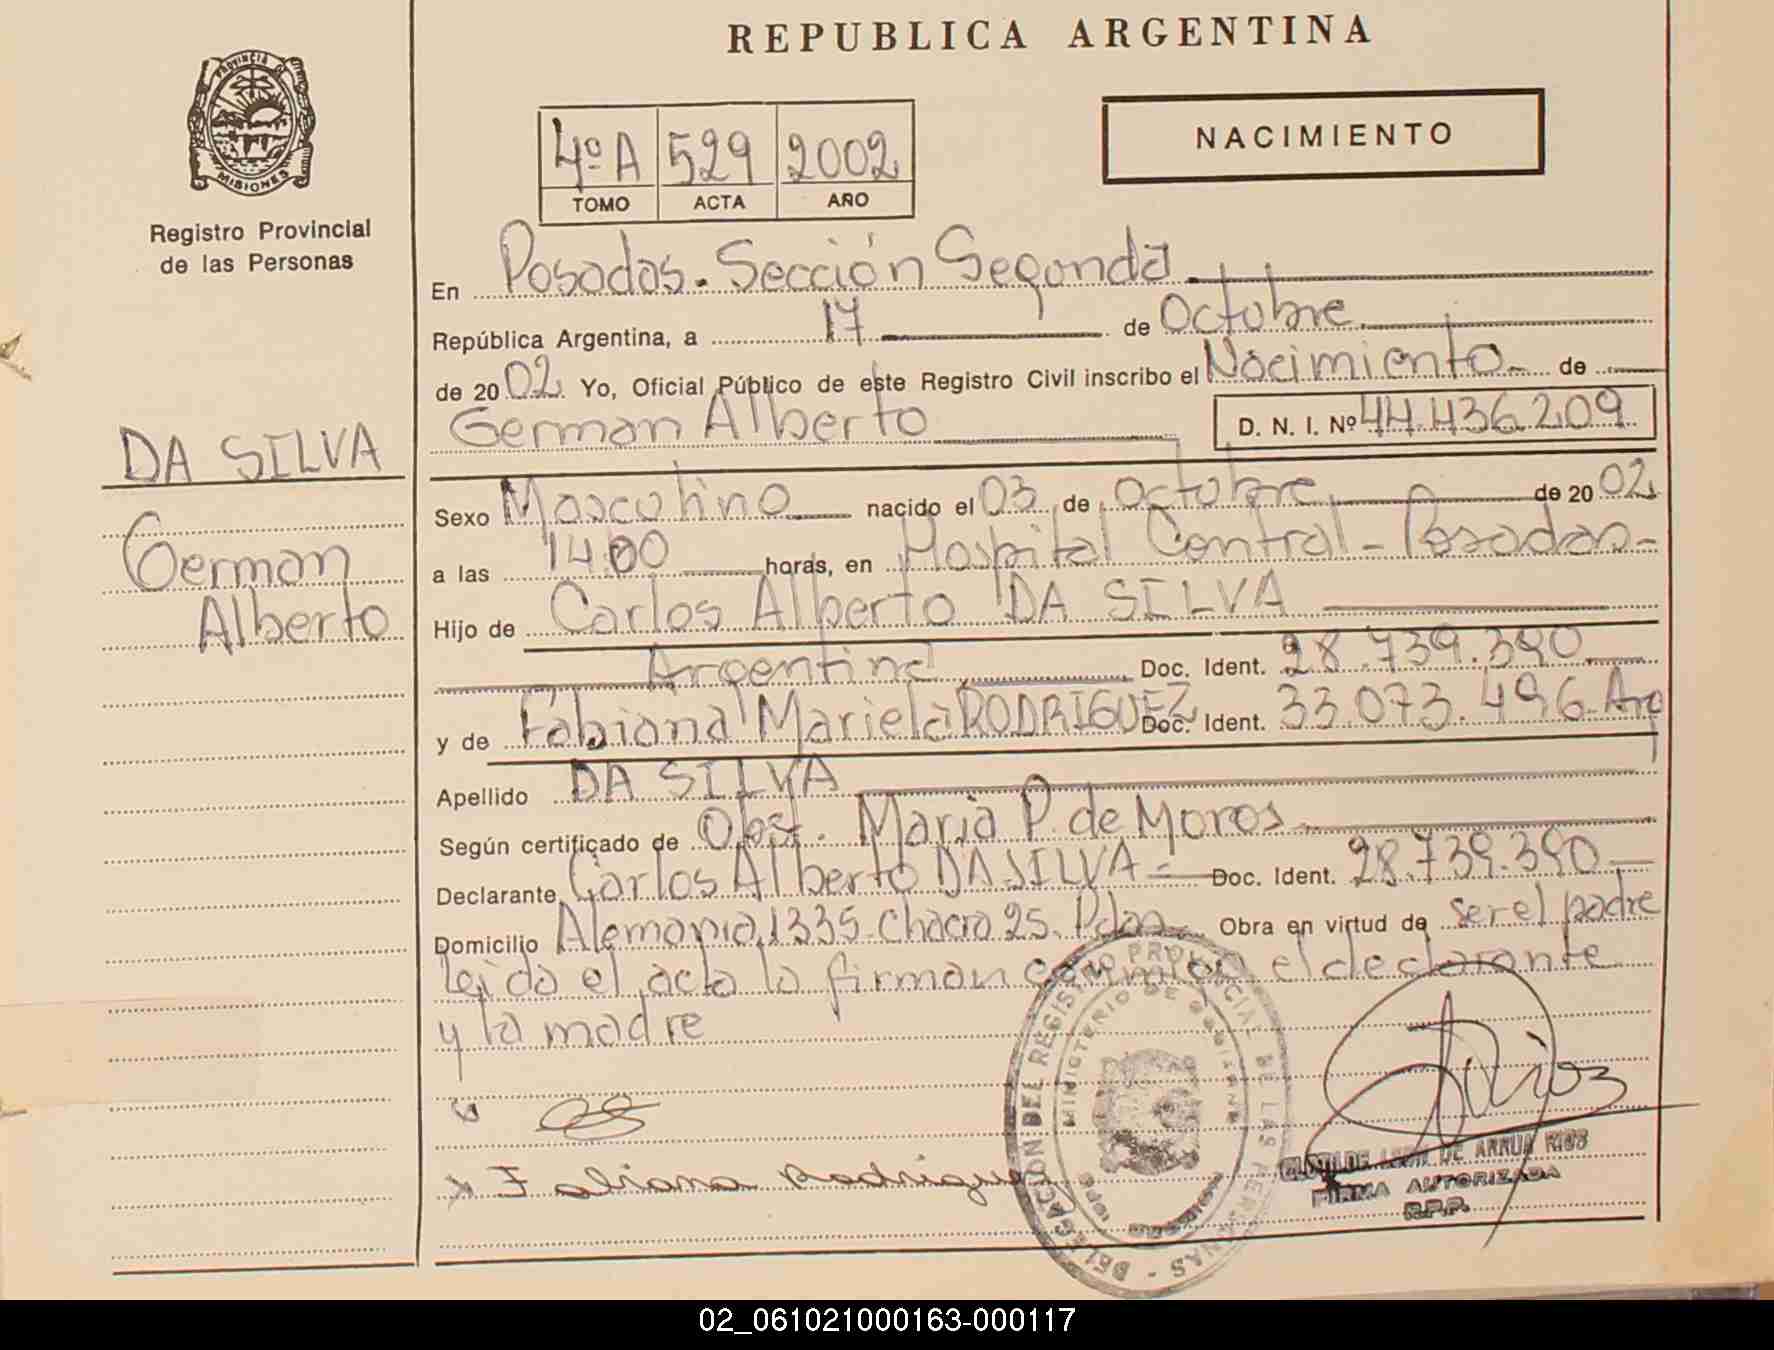 REPUBLICA ARGENTINA
PROVINCIA DE
MISIONES
Registro Provincial
de las Personas
4º A 529 2002
TOMO ACTA AÑO
NACIMIENTO
En Posadas. Sección Segunda
República Argentina, a 17 de Octubre
de 2002 Yo, Oficial Público de este Registro Civil inscribo el Nacimiento de
German Alberto D. N. I. Nº 44.436.209
DA SILVA
German
Alberto
Sexo Masculino nacido el 03 de Octubre de 2002
a las 14.00 horas, en Hospital Central - Posadas -
Hijo de Carlos Alberto DA SILVA
Argentina Doc. Ident. 28.739.390
y de Fabiana Mariela RODRIGUEZ Doc. Ident. 33.073.496 Arg
Apellido DA SILVA
Según certificado de Obst. Maria P. de Moros
Declarante Carlos Alberto DA SILVA = Doc. Ident. 28.739.390
Domicilio Alemania 1335 Chacra 25. Pdas Obra en virtud de ser el padre
leida el acta la firman conmigo el declarante
y la madre
x Fabiana Rodriguez
DELEGACION DEL REGISTRO PROVINCIAL DE LAS PERSONAS
MINISTERIO DE GOBIERNO
DE ARRUA RIOS
FIRMA AUTORIZADA
R.P.P.
02_061021000163-000117